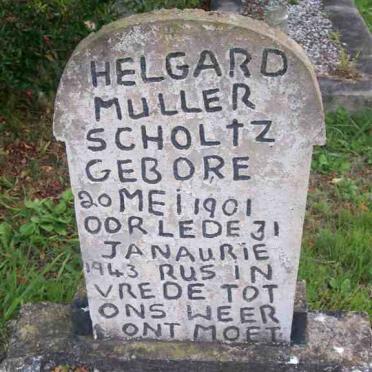 HELGARD
MULLER
SCHOLTZ
GEBORE
20 MEI 1901
OORLEDE 31
JANAURIE
1943 RUS IN
VREDE TOT
ONS WEER
ONTMOET